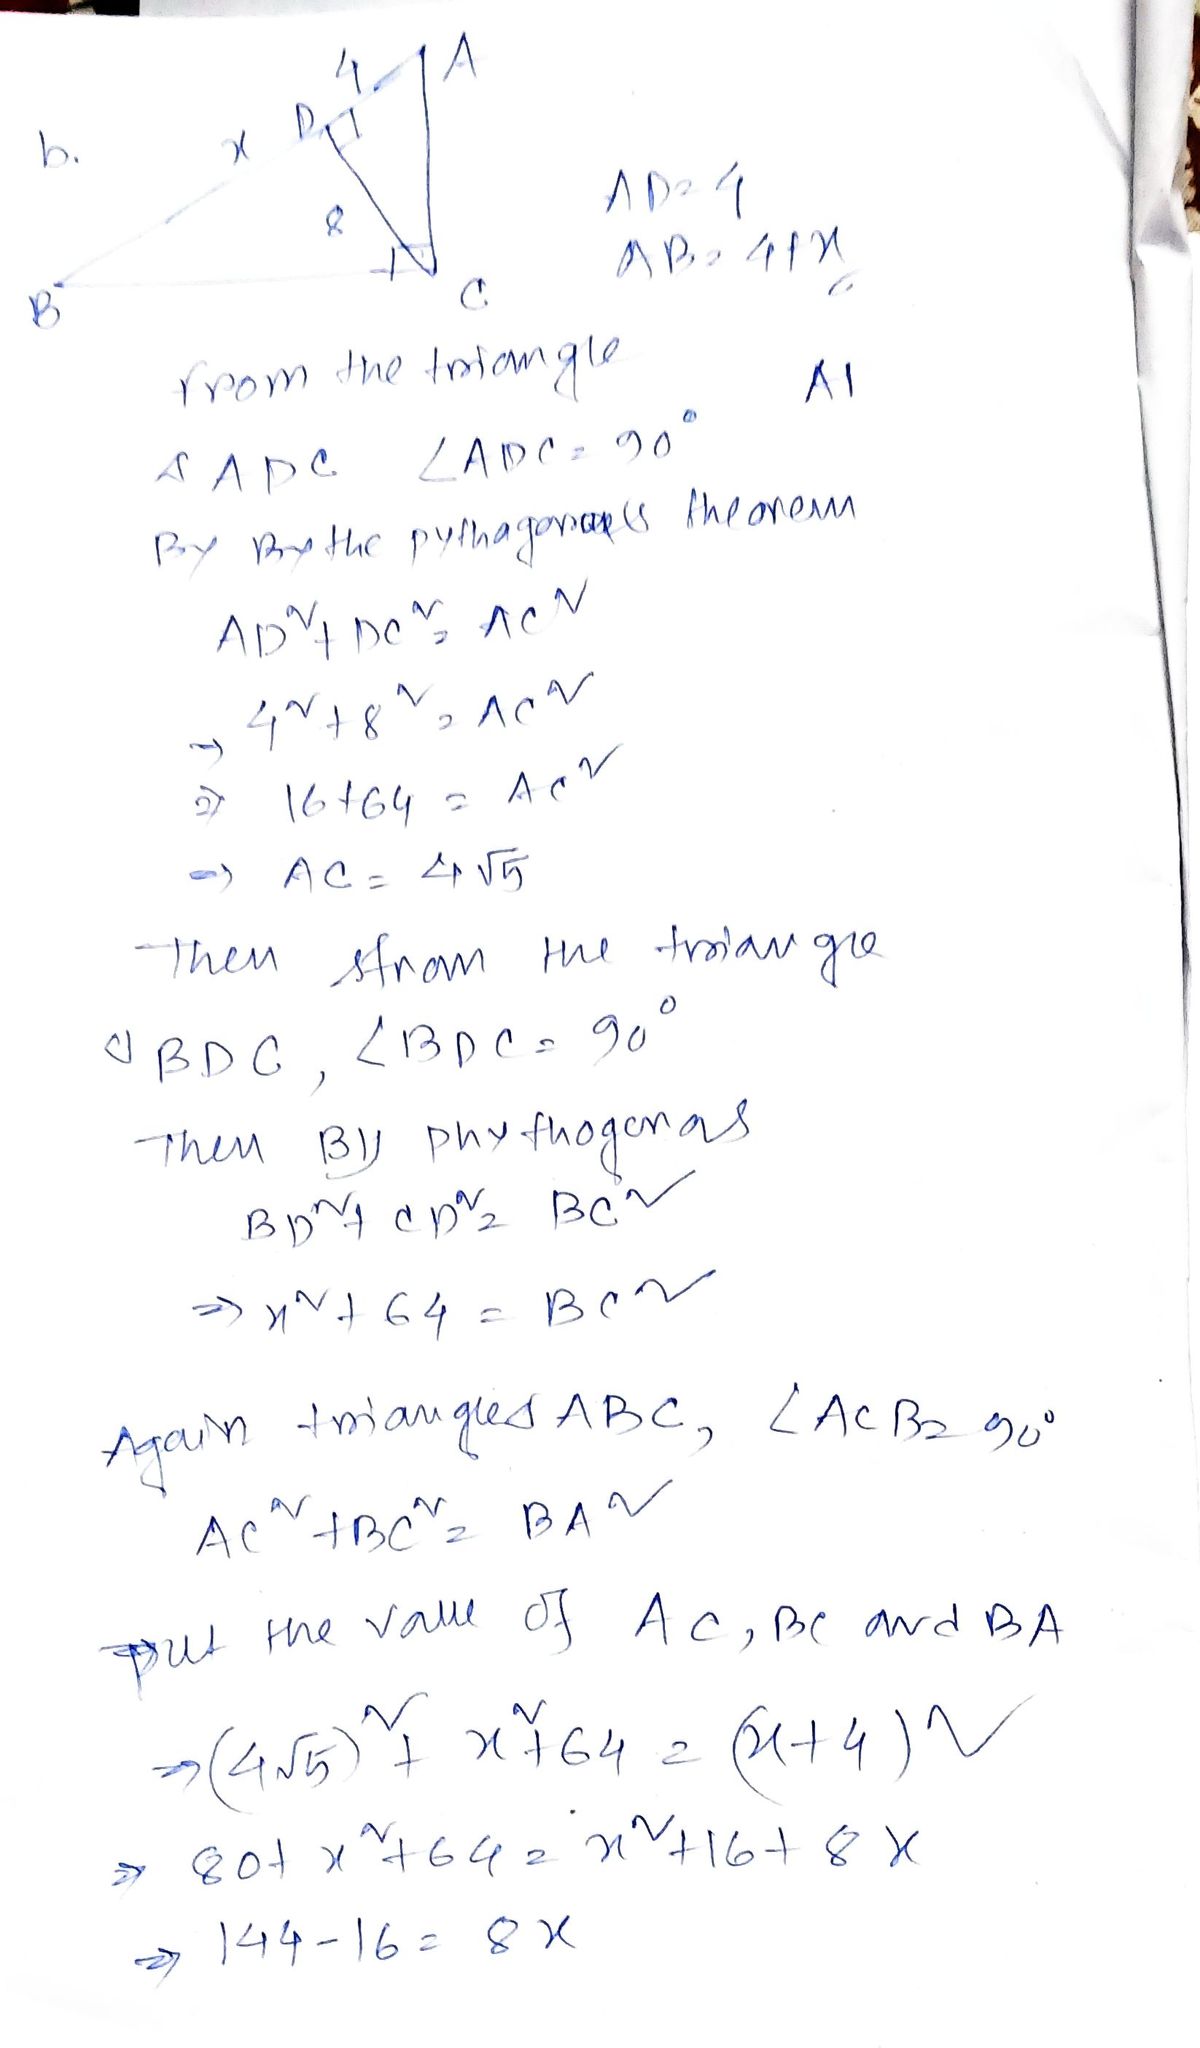 4 A
b. x D
8
B C
AD=4
AB=4+x
from the triangle
A1
ADC ∠ADC=90°
By By the theorem
AD²+DC²=AC²
⇒ 4²+8²=AC²
⇒ 16+64=AC²
⇒ AC=4√5
Then from the triangle
BDC, ∠BDC=90°
Then By phythogoras
BD²+CD²=BC²
⇒ x²+64=BC²
Again triangles ABC, ∠ACB=90°
AC²+BC²=BA²
put the value of AC, BC and BA
⇒ (4√5)²+x²+64=(x+4)²
⇒ 80+x²+64=x²+16+8x
⇒ 144-16=8x